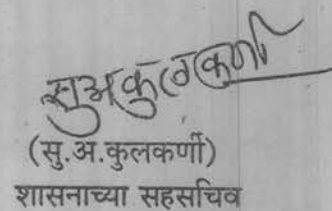 सुअकुलकर्णी
(सु.अ.कुलकर्णी)
शासनाच्या सहसचिव